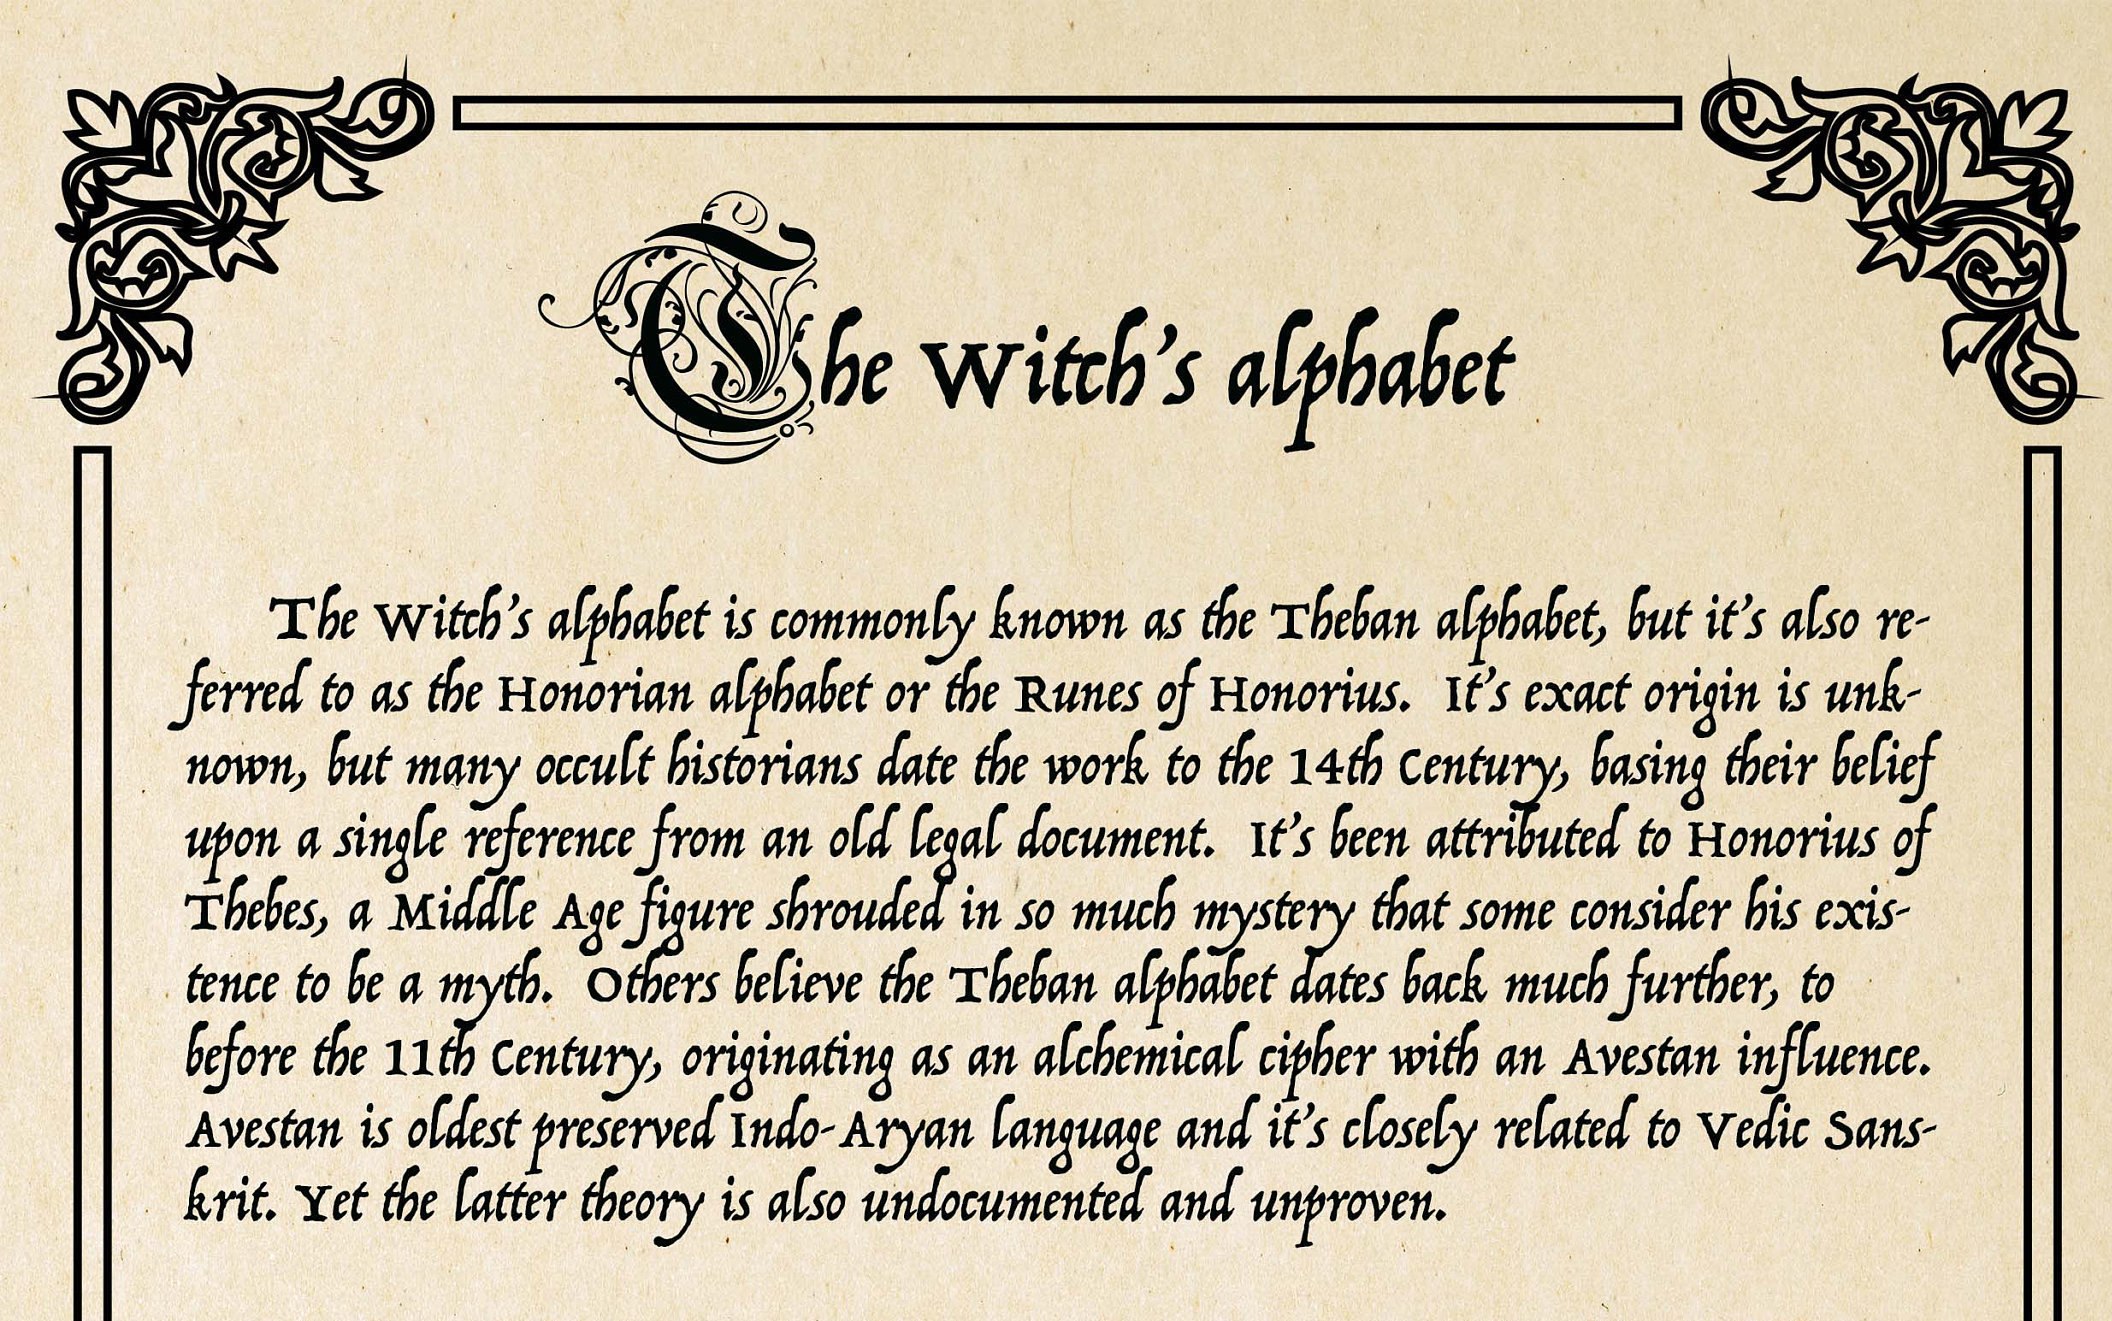 The Witch's alphabet
The Witch's alphabet is commonly known as the Theban alphabet, but it's also re-
ferred to as the Honorian alphabet or the Runes of Honorius.  It's exact origin is unk-
nown, but many occult historians date the work to the 14th Century, basing their belief
upon a single reference from an old legal document.  It's been attributed to Honorius of
Thebes, a Middle Age figure shrouded in so much mystery that some consider his exis-
tence to be a myth.  Others believe the Theban alphabet dates back much further, to
before the 11th Century, originating as an alchemical cipher with an Avestan influence.
Avestan is oldest preserved Indo-Aryan language and it's closely related to Vedic Sans-
krit. Yet the latter theory is also undocumented and unproven.